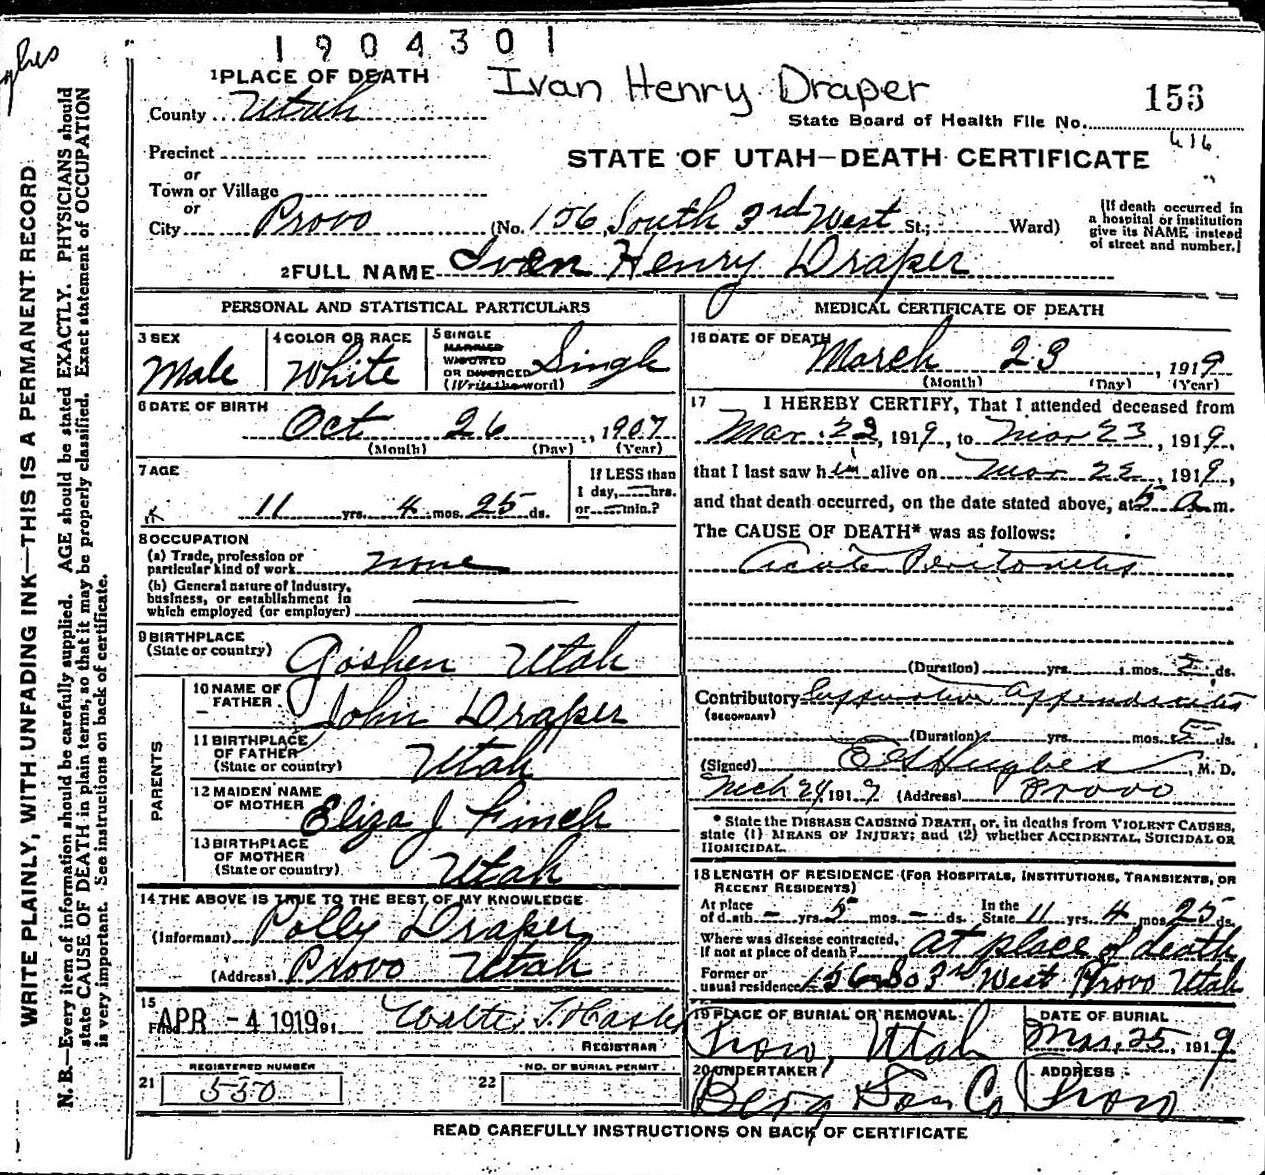 1904301
1 PLACE OF DEATH Ivan Henry Draper 153
County Utah State Board of Health File No. 416
Precinct STATE OF UTAH—DEATH CERTIFICATE
or
Town or Village
or
City Provo (No. 156 South 3rd West St.; Ward)
(If death occurred in
a hospital or institution
give its NAME instead
of street and number.)
2 FULL NAME Ivan Henry Draper
PERSONAL AND STATISTICAL PARTICULARS
3 SEX Male
4 COLOR OR RACE White
5 SINGLE
MARRIED
WIDOWED
OR DIVORCED
(Write the word) Single
6 DATE OF BIRTH
Oct 26, 1907
(Month) (Day) (Year)
7 AGE
11 yrs. 4 mos. 25 ds.
If LESS than
1 day, hrs.
or min.?
8 OCCUPATION
(a) Trade, profession or
particular kind of work none
(b) General nature of industry,
business, or establishment in
which employed (or employer)
9 BIRTHPLACE
(State or country) Goshen Utah
PARENTS
10 NAME OF
FATHER John Draper
11 BIRTHPLACE
OF FATHER
(State or country) Utah
12 MAIDEN NAME
OF MOTHER Eliza J Finch
13 BIRTHPLACE
OF MOTHER
(State or country) Utah
14 THE ABOVE IS TRUE TO THE BEST OF MY KNOWLEDGE
(Informant) Polly Draper
(Address) Provo Utah
15
Filed APR -4 1919 191 Walter T. Hasler
REGISTRAR
REGISTERED NUMBER
21 550
NO. OF BURIAL PERMIT
22
MEDICAL CERTIFICATE OF DEATH
16 DATE OF DEATH March 23, 1919
(Month) (Day) (Year)
17 I HEREBY CERTIFY, That I attended deceased from
Mar. 22, 1919, to Mar 23, 1919,
that I last saw him alive on Mar 22, 1919,
and that death occurred, on the date stated above, at 5 a m.
The CAUSE OF DEATH* was as follows:
Acute Peritonitis
(Duration) yrs. mos. 5 ds.
Contributory Suppurative appendicitis
(SECONDARY)
(Duration) yrs. mos. 5 ds.
(Signed) E G Hughes, M. D.
Mch 24, 1919 (Address) Provo
* State the DISEASE CAUSING DEATH, or, in deaths from VIOLENT CAUSES,
state (1) MEANS OF INJURY; and (2) whether ACCIDENTAL, SUICIDAL OR
HOMICIDAL.
18 LENGTH OF RESIDENCE (FOR HOSPITALS, INSTITUTIONS, TRANSIENTS, OR
RECENT RESIDENTS)
At place
of death - yrs. 5 mos. - ds. In the
State 11 yrs. 4 mos. 25 ds.
Where was disease contracted,
if not at place of death? at place of death
Former or
usual residence 156 So 3rd West Provo Utah
19 PLACE OF BURIAL OR REMOVAL
Provo, Utah
DATE OF BURIAL
Mar. 25, 1919
20 UNDERTAKER
Berg Son Co
ADDRESS
Provo
READ CAREFULLY INSTRUCTIONS ON BACK OF CERTIFICATE
WRITE PLAINLY, WITH UNFADING INK—THIS IS A PERMANENT RECORD
N. B.—Every item of information should be carefully supplied. AGE should be stated EXACTLY. PHYSICIANS should
state CAUSE OF DEATH in plain terms, so that it may be properly classified. Exact statement of OCCUPATION
is very important. See instructions on back of certificate.